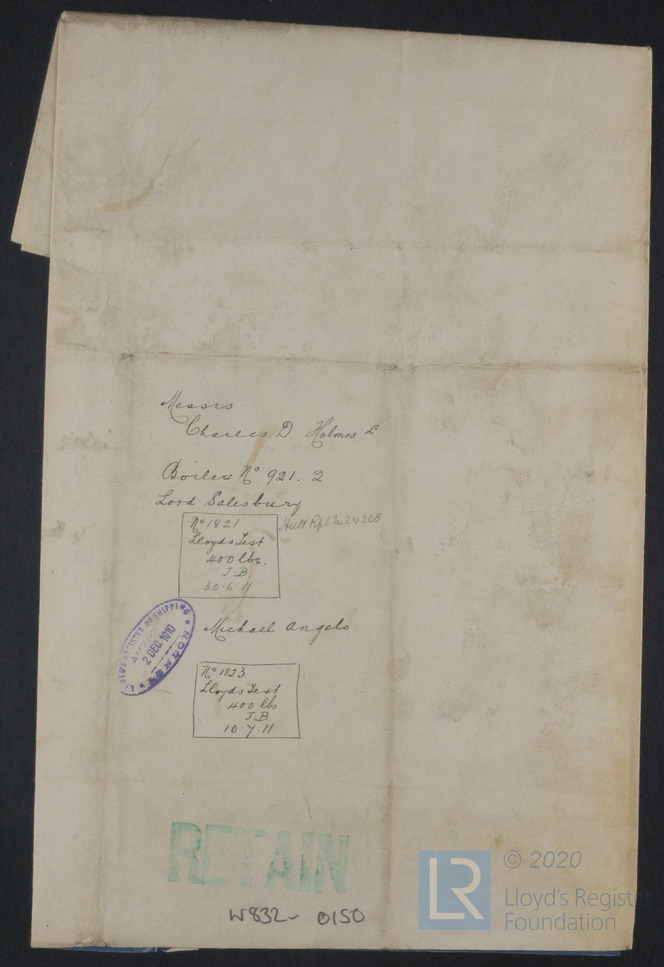 Messrs
Charles D. Holmes &
Boilers No 921. 2
Lord Salisbury
No 1821
Lloyds Test
400 lbs.
J.B.
30.6.11
Hull Rpt No 24208
LLOYD'S REGISTER OF SHIPPING
2 DEC. 1910
LONDON
Michael Angelo
No 1823
Lloyds Test
400 lbs
J.B
10.7.11
RETAIN
W832- 0150
LR
© 2020
Lloyd's Register
Foundation